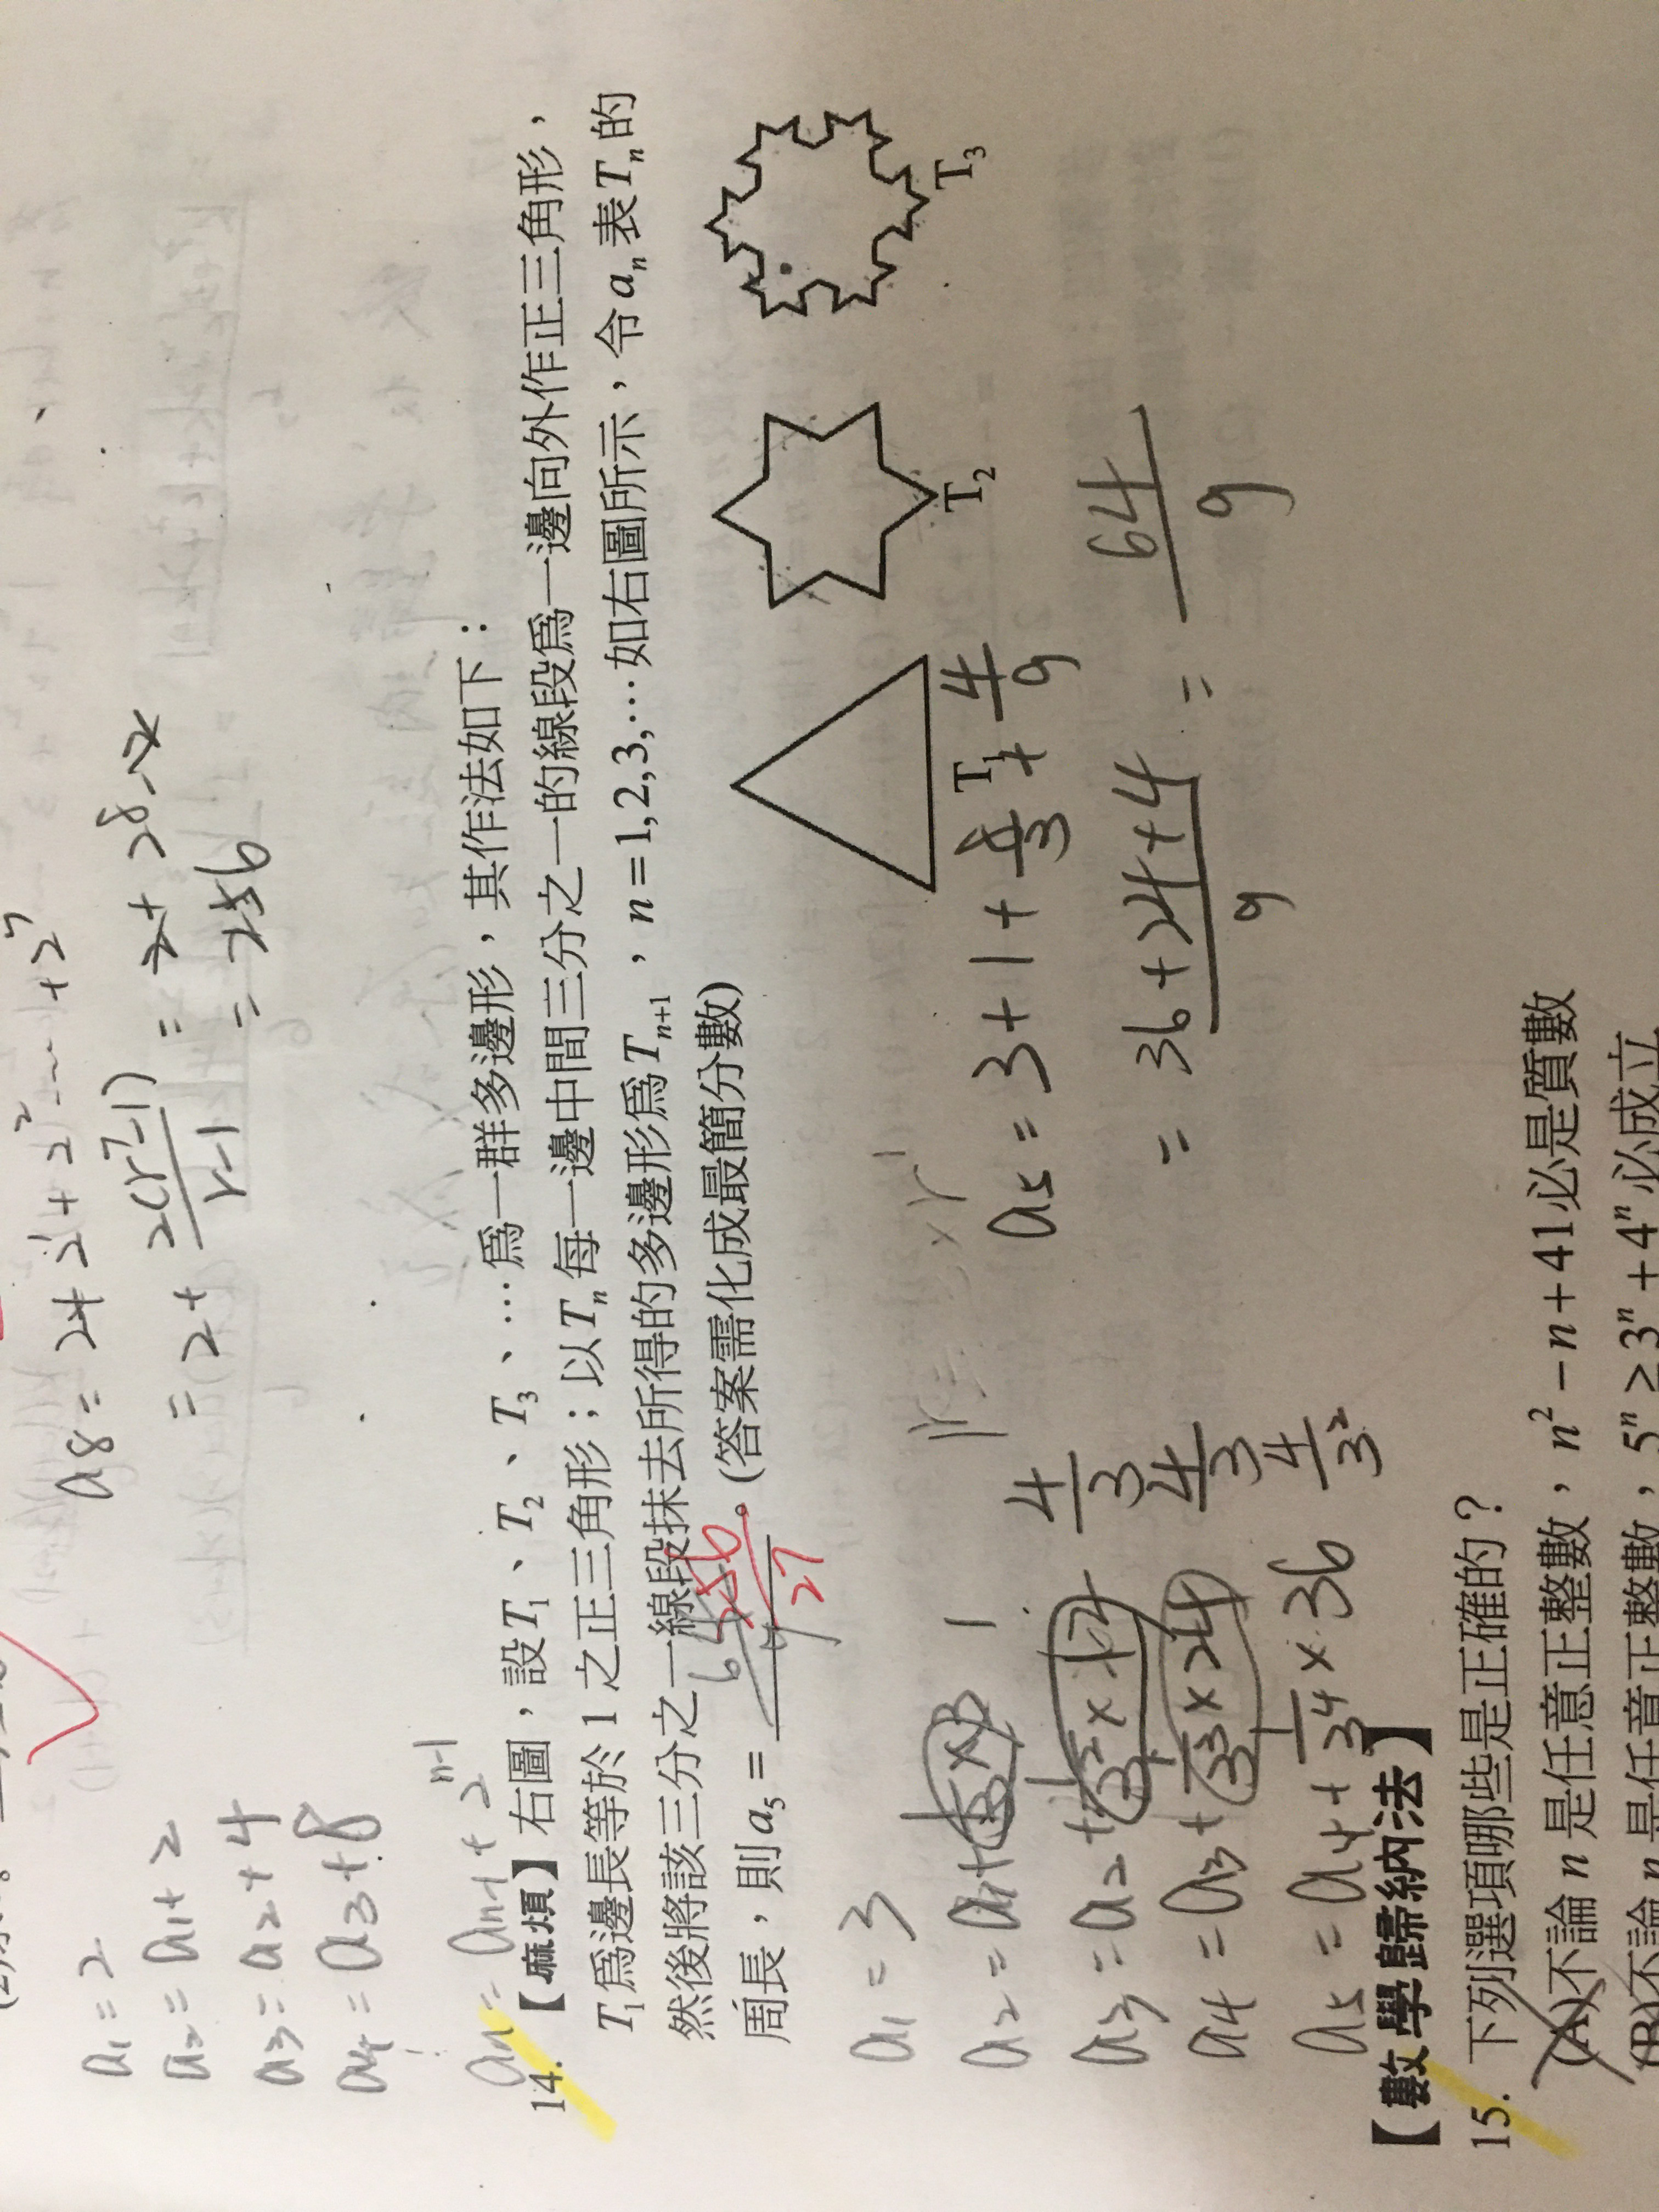 a₈ = 2 + 2¹ + 2² ~~~ + 2⁷
a₁ = 2
= 2 + 2(r⁷-1)/r-1 = 2 + 2⁸ - 2
a₂ = a₁ + 2
= 256
a₃ = a₂ + 4
a₄ = a₃ + 8
aₙ = aₙ₋₁ + 2ⁿ⁻¹
14.【麻煩】右圖，設T₁、T₂、T₃、…為一群多邊形，其作法如下：
T₁為邊長等於1之正三角形；以Tₙ每一邊中間三分之一的線段為一邊向外作正三角形，
然後將該三分之一線段抹去所得的多邊形為Tₙ₊₁，n=1,2,3,…如右圖所示，令aₙ表Tₙ的
周長，則a₅= 64/9 256/27 。(答案需化成最簡分數)
T₁
T₂
T₃
a₁ = 3
a₂ = a₁ + 1/3 × 3 1
a₃ = a₂ + 1/3² × 12 4/3
a₄ = a₃ + 1/3³ × 24 4/3
a₅ = a₄ + 1/3⁴ × 36 4/3²
a₅ = 3 + 1 + 8/3 + 4/9
= 36+24+4/9 = 64/9
【數學歸納法】
15. 下列選項哪些是正確的？
(A)不論n是任意正整數，n²−n+41必是質數
(B)不論n是任意正整數，5ⁿ≥3ⁿ+4ⁿ必成立